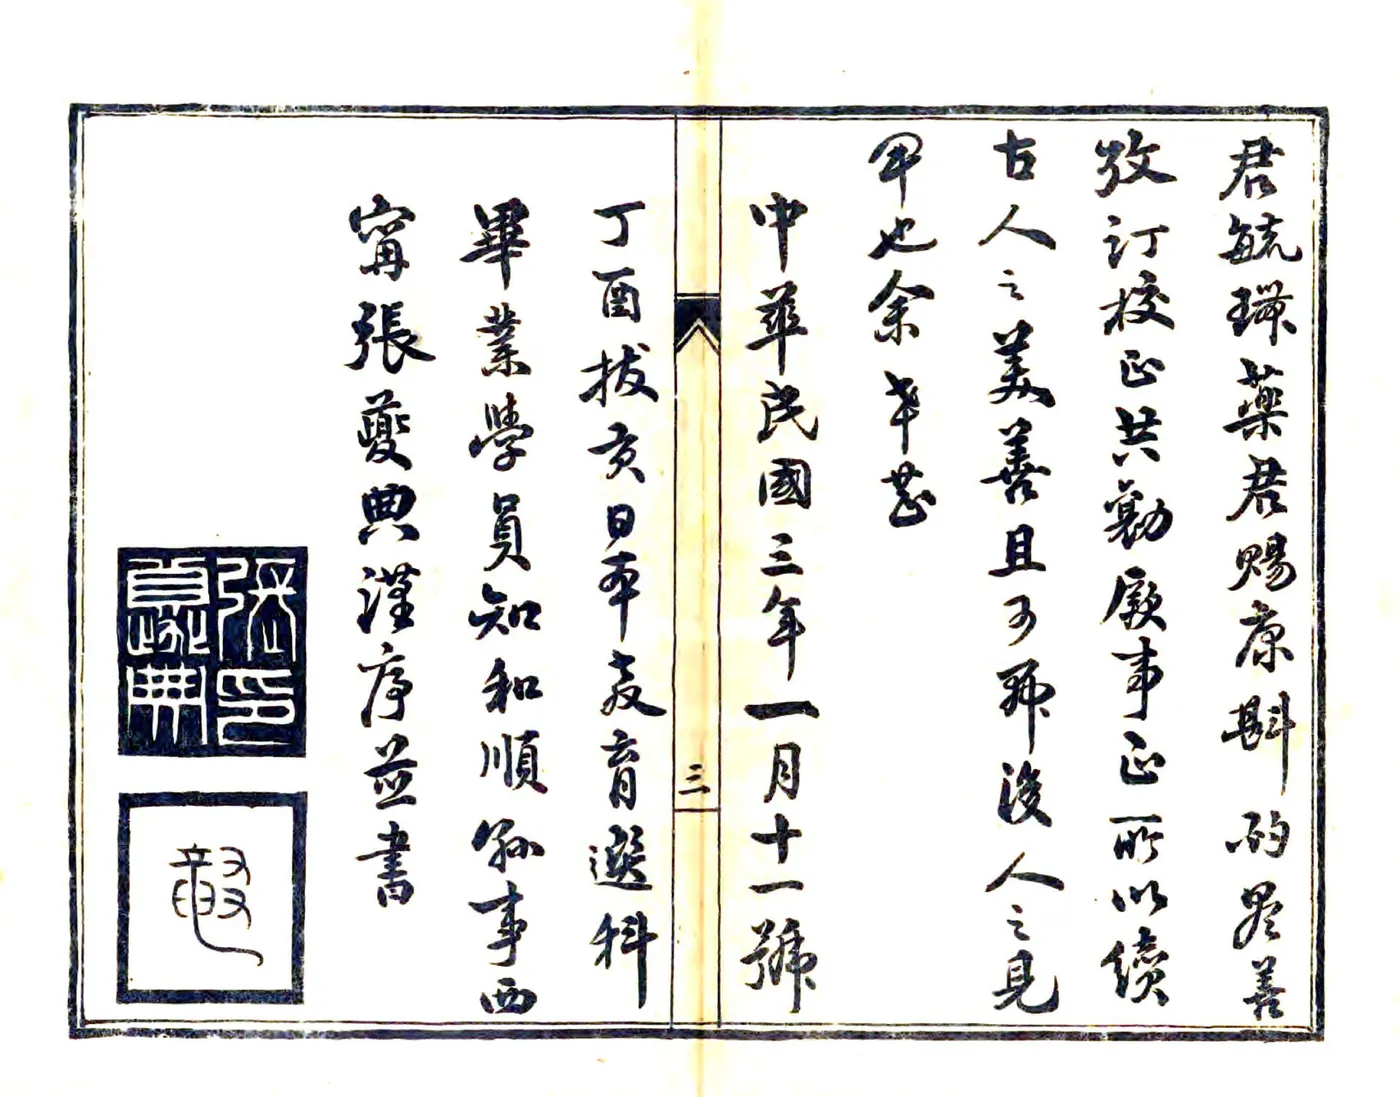 君毓藥君賜康斟酌盡善
攷訂校正共勷厥事正所以續
古人之美善且可後人之見
也余甚
中華民國三年一月十一號
三
丁酉拔貢日本教育選科
畢業學員知和順縣事西
甯張夔典謹序並書
張印夔典